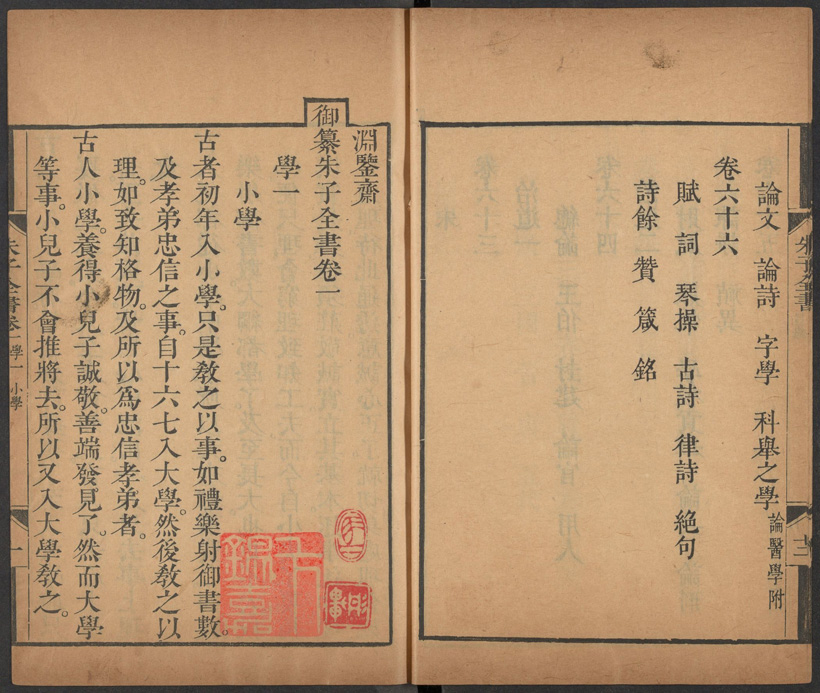 論文 論詩 字學 科舉之學 論醫學附
卷六十六
賦 詞 琴操 古詩 律詩 絕句
詩餘 贊 箴 銘
朱子全書
十二
淵鑒齋
御纂朱子全書卷一
學一
小學
古者初年入小學。只是敎之以事。如禮樂射御書數。
及孝弟忠信之事。自十六七入大學。然後敎之以
理。如致知格物。及所以爲忠信孝弟者。
古人小學。養得小兒子誠敬。善端發見了。然而大學
等事。小兒子不會推將去。所以又入大學敎之。
朱子全書卷一 學一 小學
一